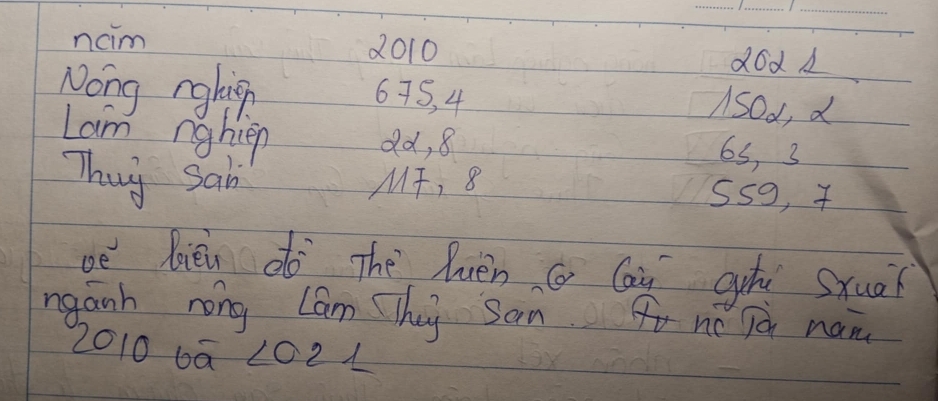 năm 2010 2021
Nông nghiệp 675,4 1502,2
Lâm nghiệp 22,8 63,3
Thuỷ sản 117,8 559,7
vẽ biểu đồ thể hiện cơ cấu gtrị sxuất
ngành nông Lâm Thuỷ sản. nc ta năm
2010 và 2021